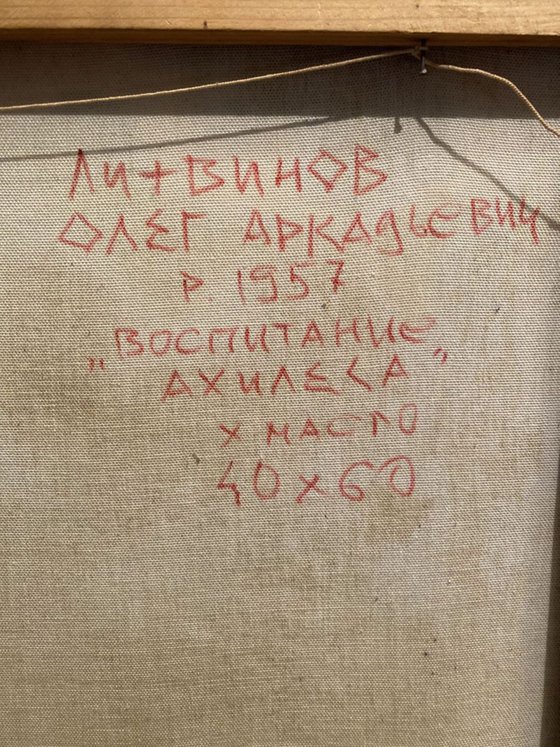 ЛИТВИНОВ
ОЛЕГ АРКАДЬЕВИЧ
Р. 1957
„ВОСПИТАНИЕ
АХИЛЕСА”
Х МАСЛО
40х60